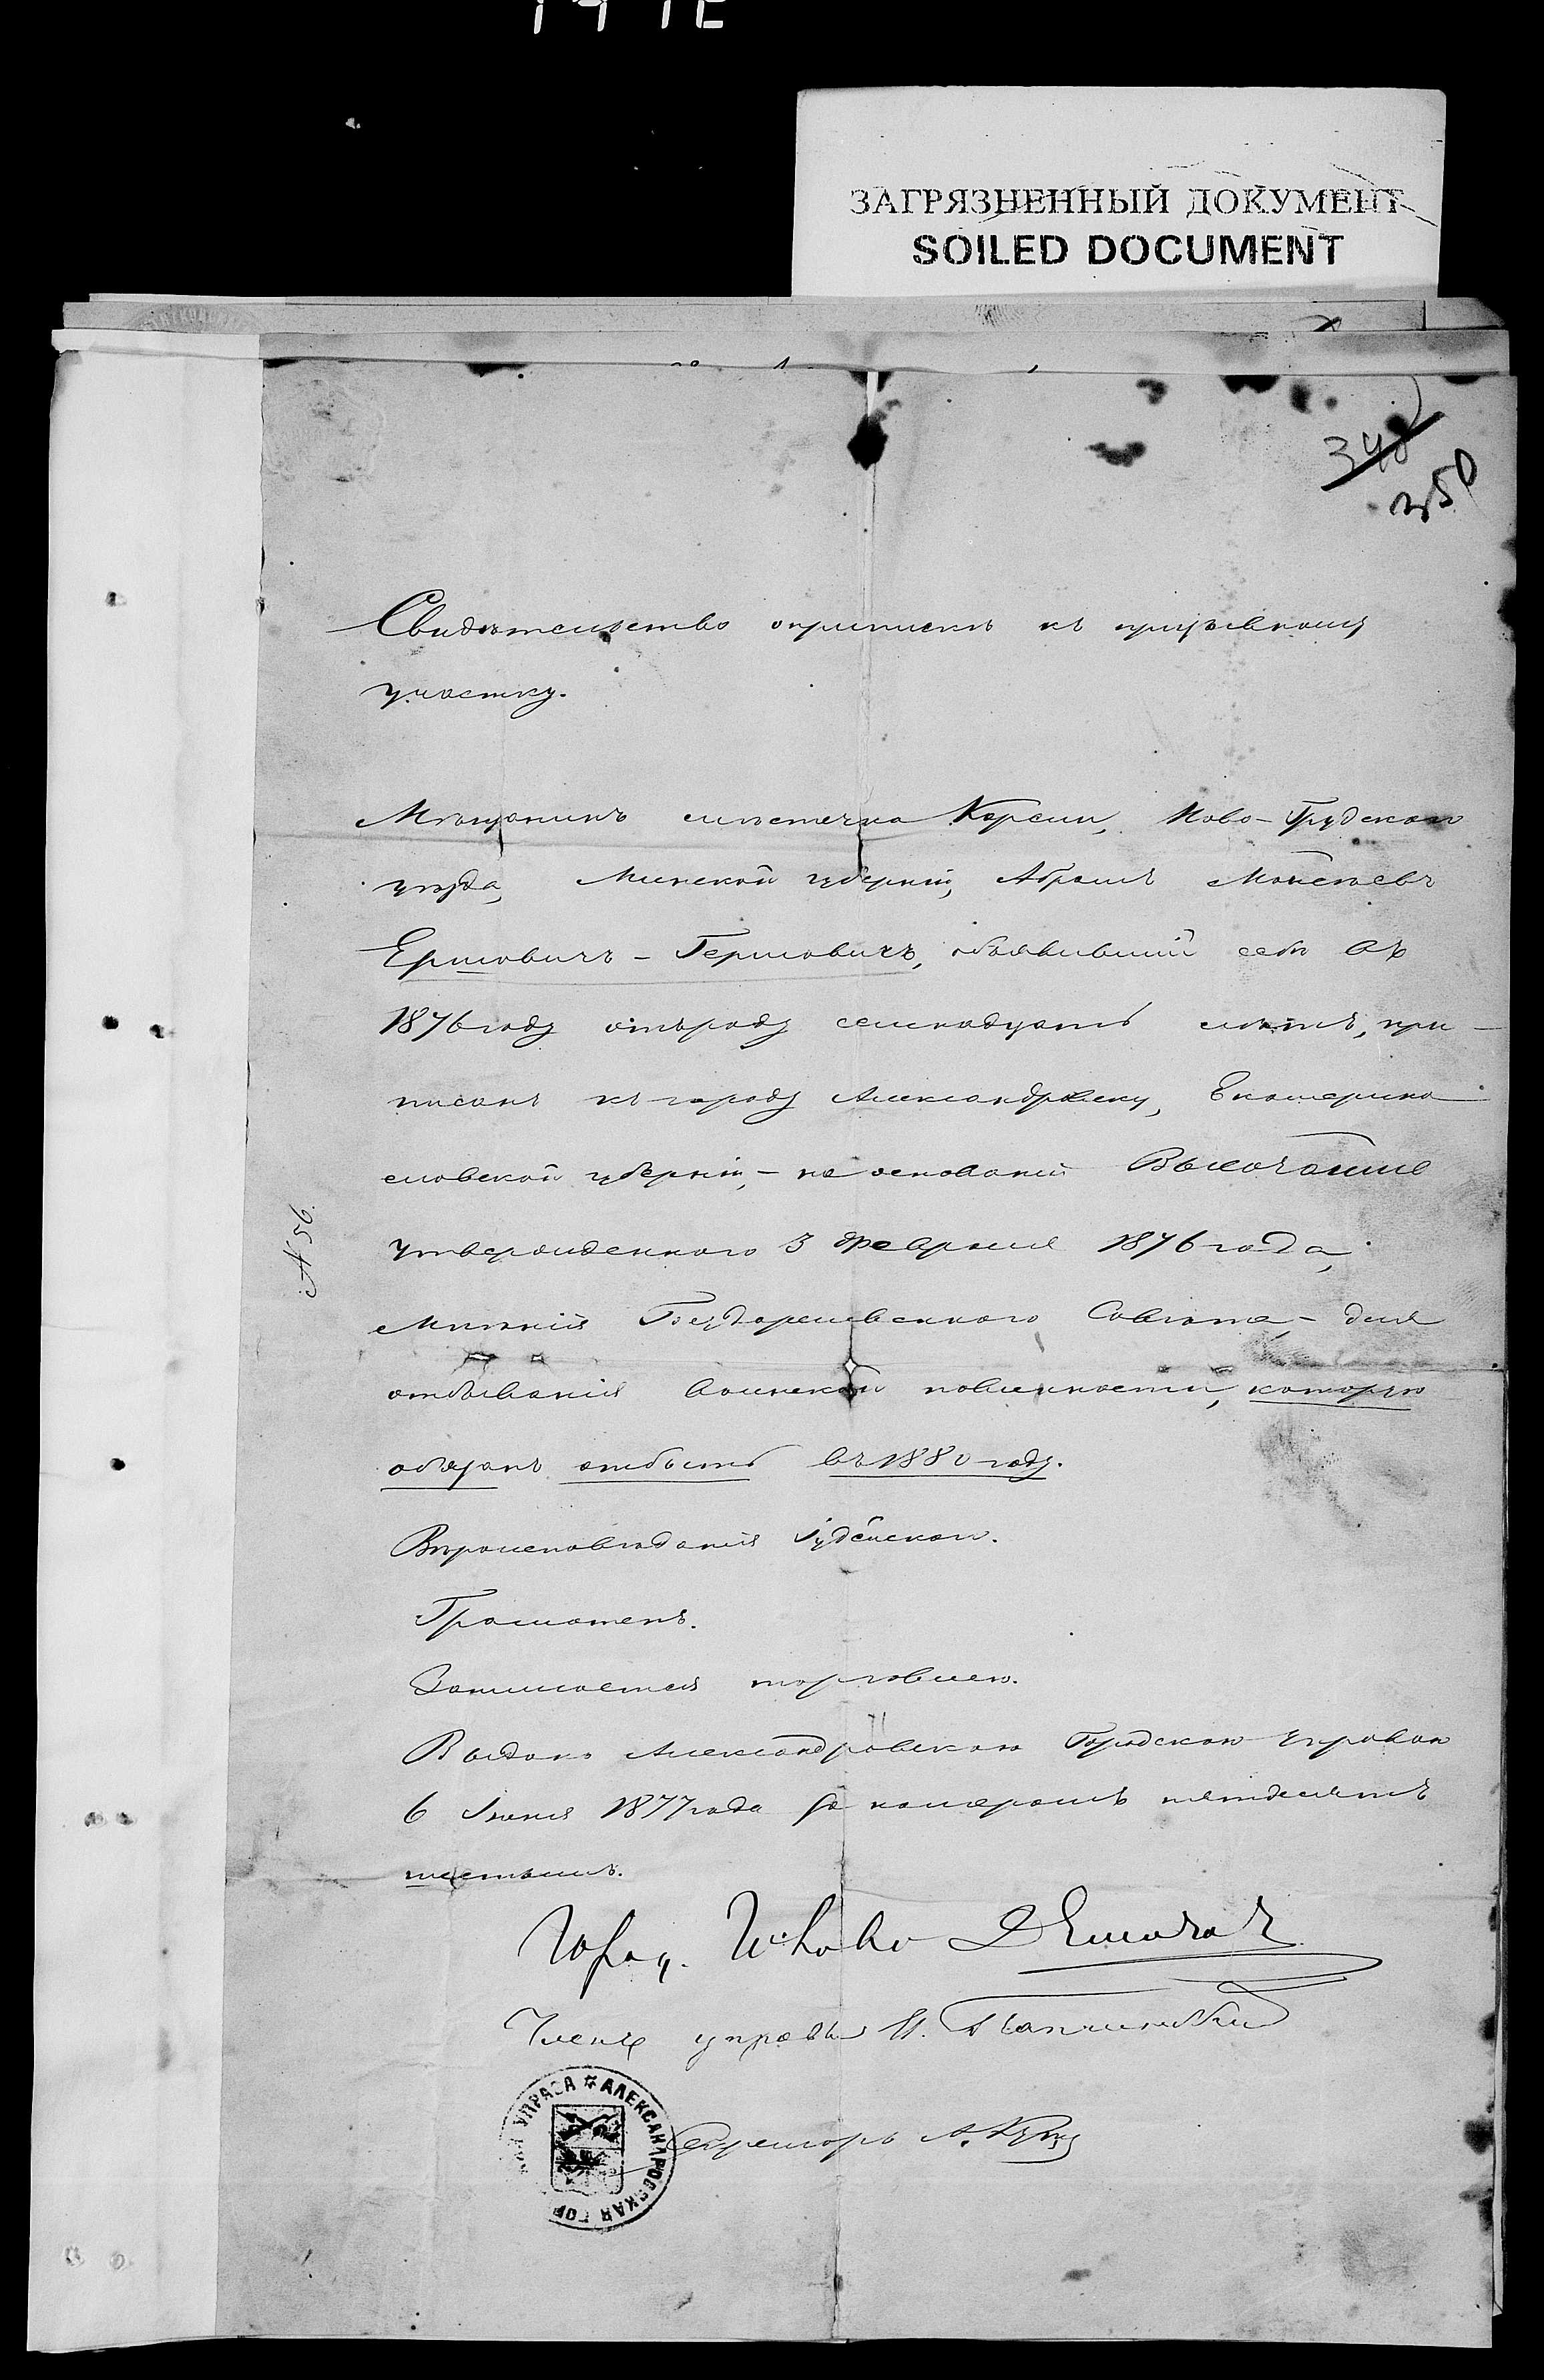 ЗАГРЯЗНЕННЫЙ ДОКУМЕНТ
SOILED DOCUMENT
340
350
Свидѣтельство о припискѣ къ призывному
участку.
Мѣщанинъ мѣстечка Ново-Грудскаго
уѣзда, Минской губерніи, Абрамъ Моисеевъ
Ершовичъ - Гершовичъ, объявившій себѣ въ
1876 году отъ роду семнадцать лѣтъ, при-
писанъ къ городу Александровску, Екатерино
славской губерніи, - на основаніи Высочайше
утвержденнаго 3 Февраля 1876 года,
Мнѣнія Государственнаго Совѣта, - для
отбыванія воинской повинности, которую
обязанъ отбыть въ 1880 году.
Вѣроисповѣданія Іудейскаго.
Грамотенъ.
Занимается торговлею.
Выдано Александровскою Городскою Управою
6 Іюня 1877 года за номеромъ пятдесятъ
шестымъ.
№ 56.
Членъ управы
Секретарь
АЛЕКСАНДРОВСКАЯ ГОР УПРАВА